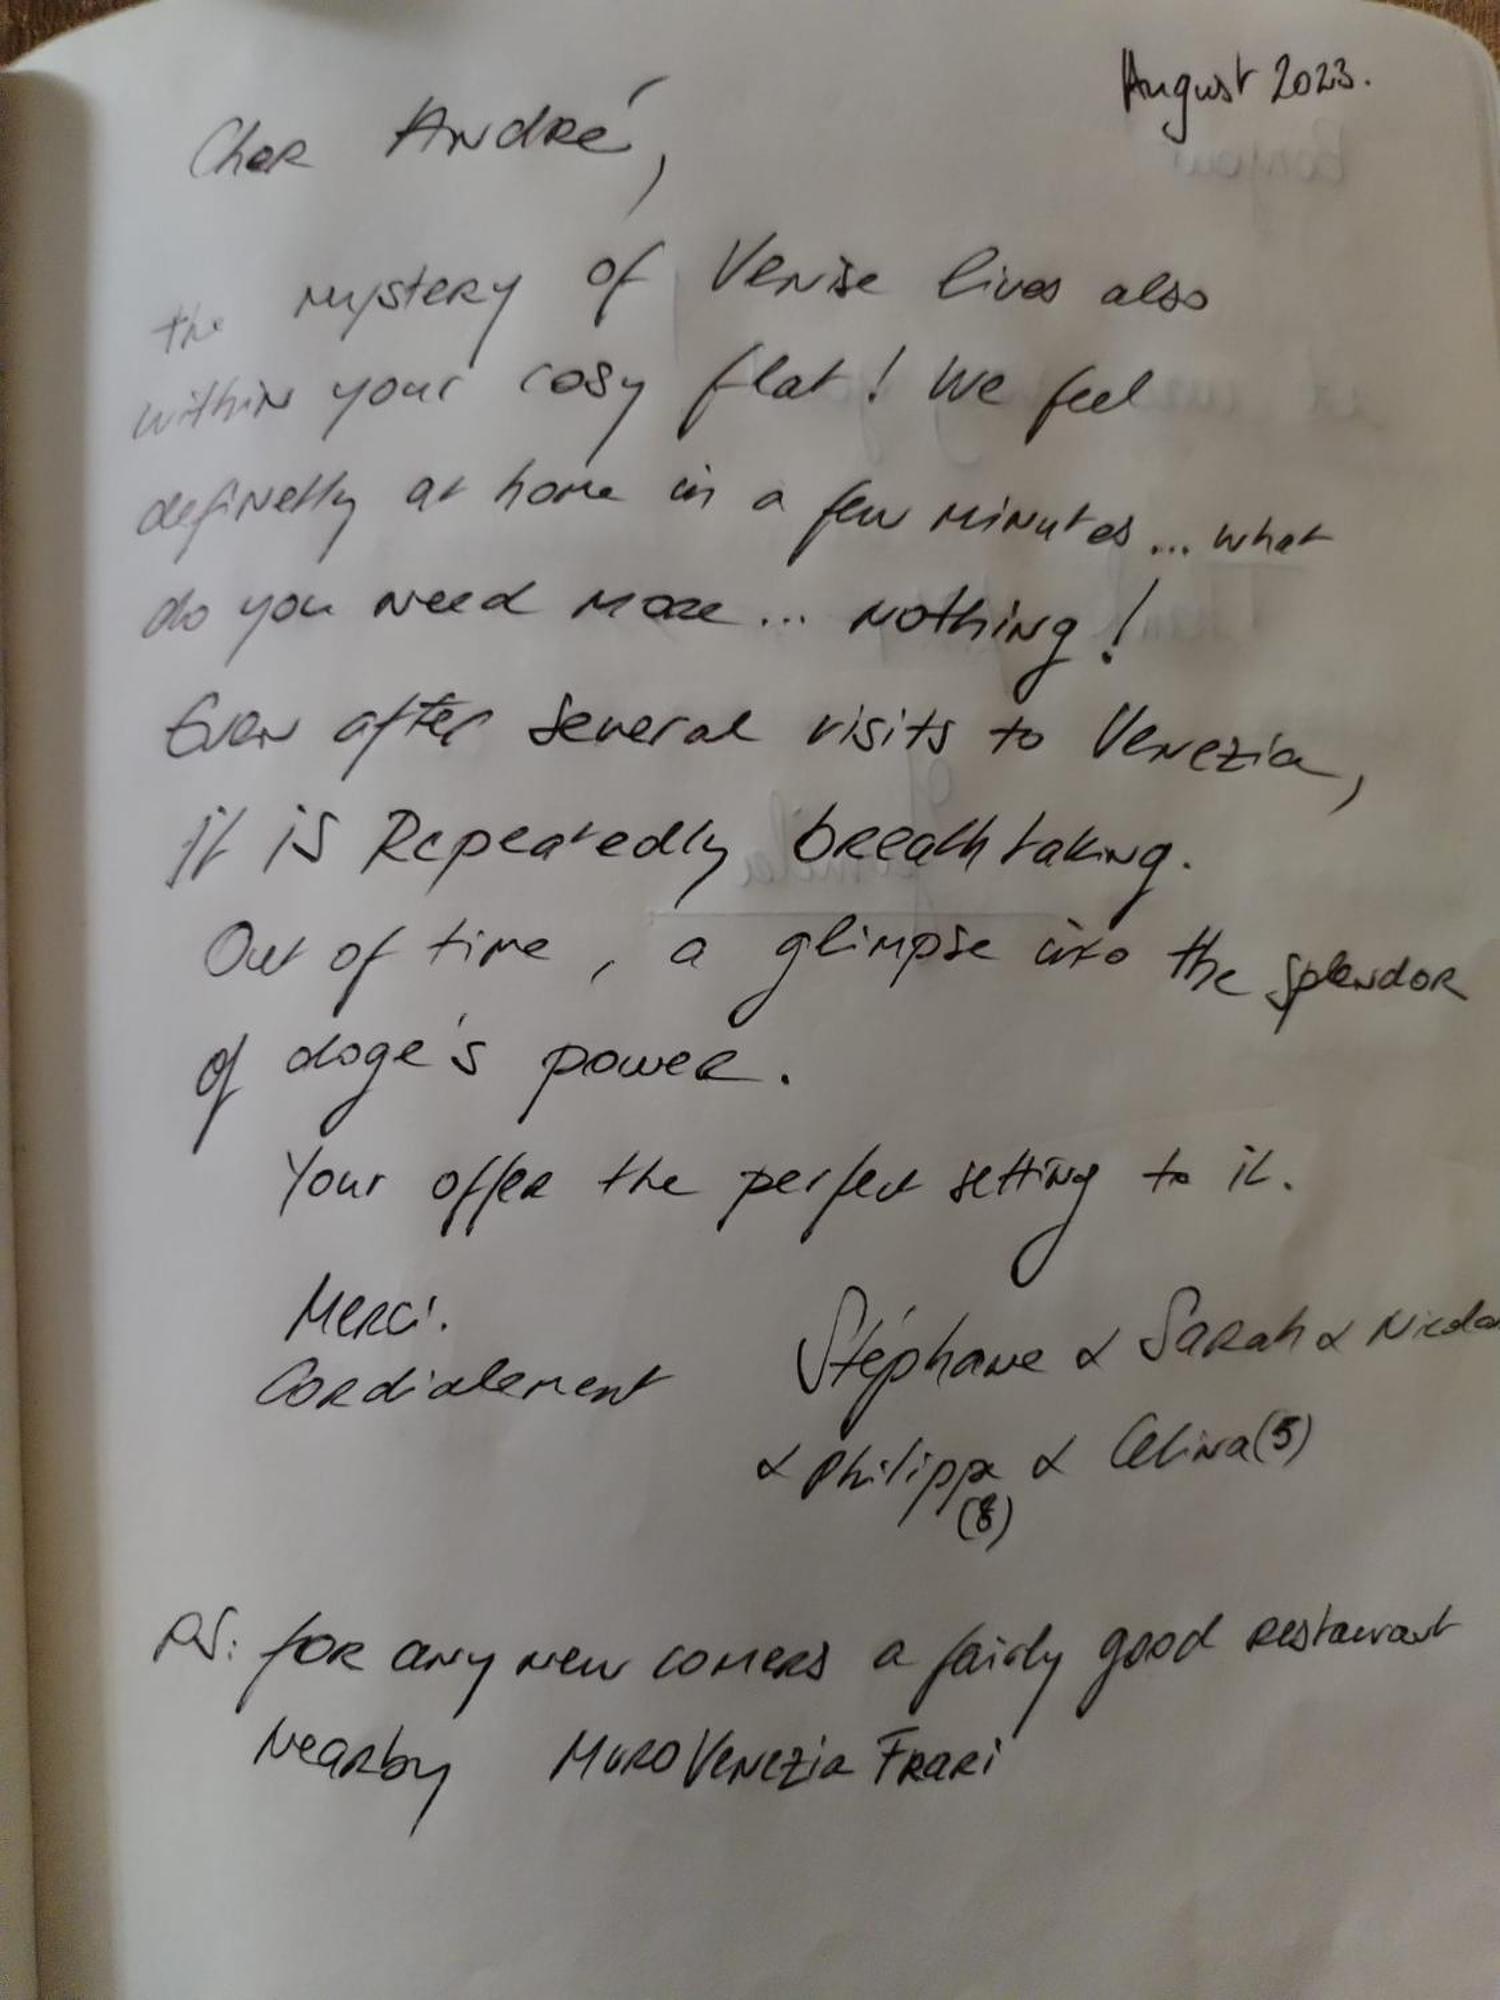 August 2023.
Cher André,
the mystery of Venise lives also
within your cosy flat! We feel
definetly at home in a few minutes... what
do you need more... nothing!
Even after several visits to Venezia,
it is Repeatedly breathtaking.
Out of time, a glimpse into the splendor
of doge's power.
Your offer the perfect setting to it.
Merci.
Cordialement
Stéphane & Sarah & Nicola
& Philippa & Celina (5)
(8)
PS: for any new comers a fairly good restaurant
nearby Muro Venezia Frari